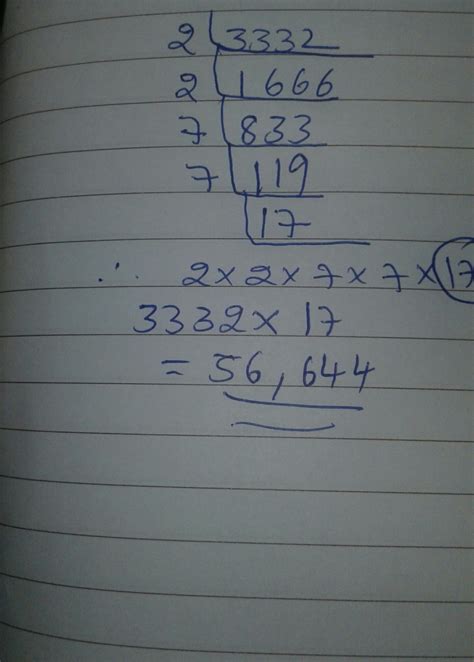 2 | 3332
2 | 1666
7 | 833
7 | 119
| 17
∴ 2×2×7×7×17
3332×17
= 56,644